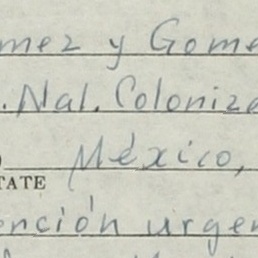 mez y Gome
. Nal. Coloniza
) México,
TATE
ención urgen